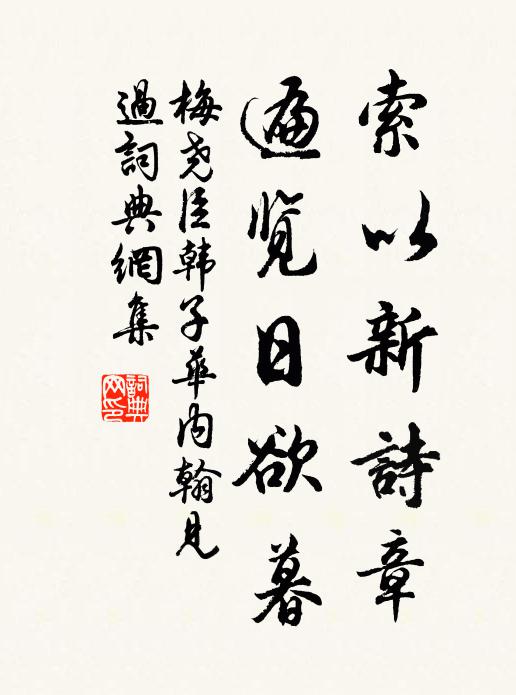 索以新詩章
遍覧日欲暮
梅尧臣韩子華内翰見
過詞典網集
詞典
网印